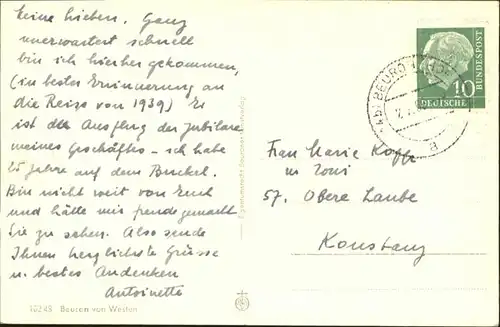 Meine Lieben. Ganz
unerwartet schnell
bin ich hierher gekommen,
(in bester Erinnerung an
die Reise von 1939) Es
ist der Ausflug der Jubilare
meines Geschäftes – ich habe
25 Jahre auf dem Buckel.
Bin nicht weit von Euch
und hätte mir Freude gemacht
Sie zu sehen. Also sende
Ihnen herzlichste Grüsse
u. bestes Andenken
Antoinette
10248 Beuron von Westen
BEURON
10
DEUTSCHE
BUNDESPOST
Frau Marie
57. Obere Laube
Konstanz